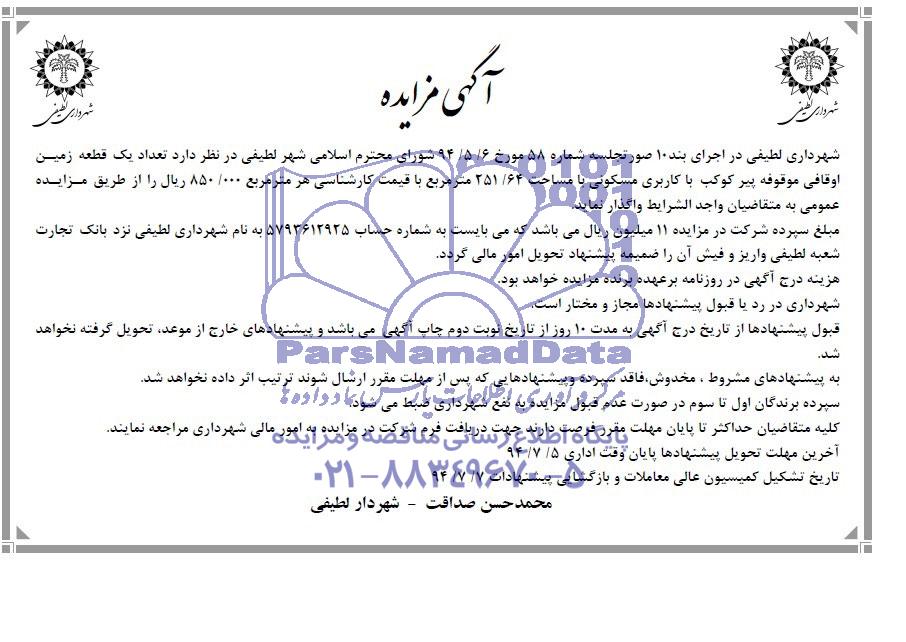 آگهی مزایده
شهرداری لطیفی
شهرداری لطیفی
شهرداری لطیفی در اجرای بند۱۰ صورتجلسه شماره ۵۸ مورخ ۶/ ۵/ ۹۴ شورای محترم اسلامی شهر لطیفی در نظر دارد تعداد یک قطعه زمیـن
اوقافی موقوفه پیر کوکب با کاربری مسکونی با مساحت ۲۵۱/۶۴ مترمربع با قیمت کارشناسی هر مترمربع ۸۵۰/۰۰۰ ریال را از طریق مـزایـده
عمومی به متقاضیان واجد الشرایط واگذار نماید.
مبلغ سپرده شرکت در مزایده ۱۱ میلیون ریال می باشد که می بایست به شماره حساب ۵۷۹۳۶۱۲۹۲۵ به نام شهرداری لطیفی نزد بانک تجارت
شعبه لطیفی واریز و فیش آن را ضمیمه پیشنهاد تحویل امور مالی گردد.
هزینه درج آگهی در روزنامه برعهده برنده مزایده خواهد بود.
شهرداری در رد یا قبول پیشنهادها مجاز و مختار است.
قبول پیشنهادها از تاریخ درج آگهی به مدت ۱۰ روز از تاریخ نوبت دوم چاپ آگهی می باشد و پیشنهادهای خارج از موعد، تحویل گرفته نخواهد
شد.
به پیشنهادهای مشروط ، مخدوش،فاقد سپرده وپیشنهادهایی که پس از مهلت مقرر ارسال شوند ترتیب اثر داده نخواهد شد.
سپرده برندگان اول تا سوم در صورت عدم قبول مزایده به نفع شهرداری ضبط می شود.
کلیه متقاضیان حداکثر تا پایان مهلت مقرر فرصت دارند جهت دریافت فرم شرکت در مزایده به امور مالی شهرداری مراجعه نمایند.
آخرین مهلت تحویل پیشنهادها پایان وقت اداری ۵/ ۷/ ۹۴
تاریخ تشکیل کمیسیون عالی معاملات و بازگشایی پیشنهادات ۷/ ۷/ ۹۴
محمدحسن صداقت - شهردار لطیفی
ParsNamadData
مرکز فرآوری اطلاعات پارس نماد داده ها
پایگاه اطلاع رسانی مناقصه و مزایده
۰۲۱-۸۸۳۴۹۶۷۰-۵